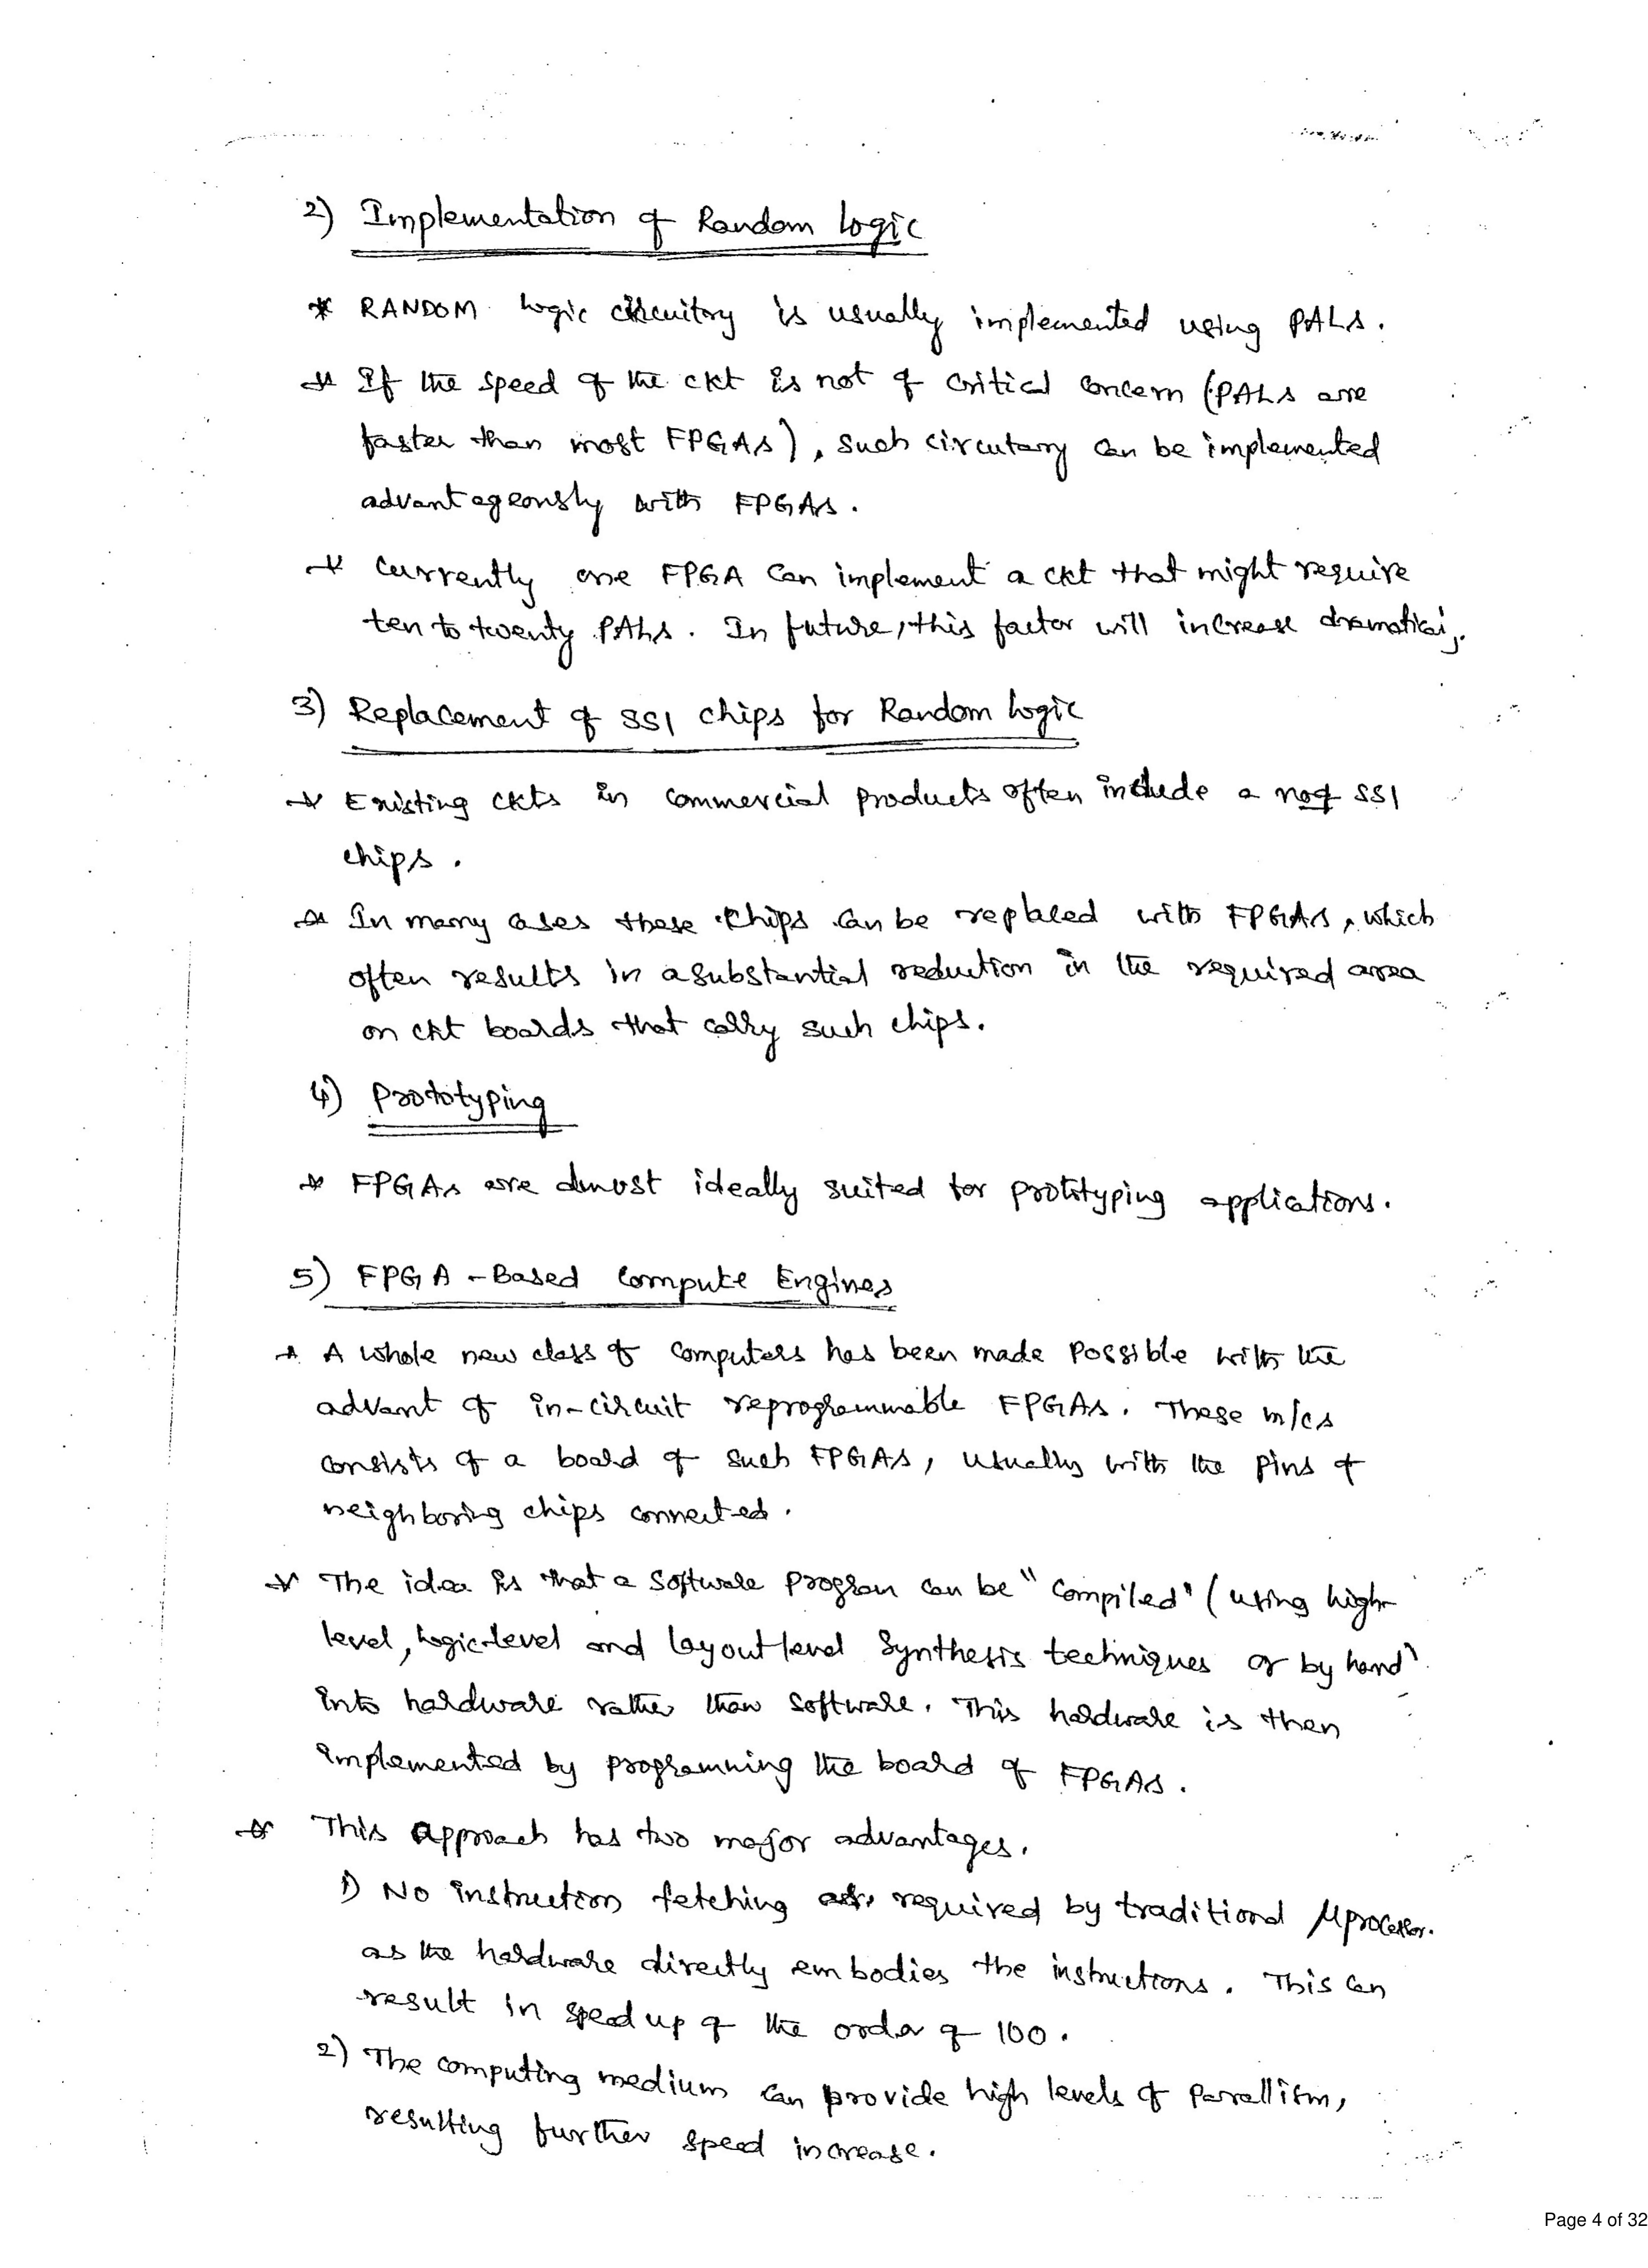 2) Implementation of Random Logic
* RANDOM Logic circuitory is usually implemented using PALs.
* If the speed of the ckt is not of critical concern (PALs are
faster than most FPGAs), such circutary can be implemented
advantageously with FPGAs.
* Currently one FPGA can implement a ckt that might require
ten to twenty PALs. In future, this factor will increase
3) Replacement of SSI chips for Random Logic
* Existing ckts in commercial products often include a no of SSI
chips.
* In many cases these chips can be replaced with FPGAs, which
often results in a substantial reduction in the required area
on ckt boards that carry such chips.
4) Prototyping
* FPGAs are almost ideally suited for prototyping applications.
5) FPGA-Based Compute Engines
* A whole new class of computers has been made possible with the
advant of in-circuit reprogrammable FPGAs. These m/cs
consists of a board of such FPGAs, usually with the pins of
neighboring chips connected.
* The idea is that a software program can be "compiled" (using high-
level, logic-level and layout level synthesis techniques or by hand)
into hardware rather than software. This hardware is then
implemented by programming the board of FPGAs.
* This approach has two major advantages.
1) No instruction fetching required by traditional μprocessor.
as the hardware directly embodies the instructions. This can
result in speed up of the order of 100.
2) The computing medium can provide high levels of parallism,
resulting further speed increase.
Page 4 of 32